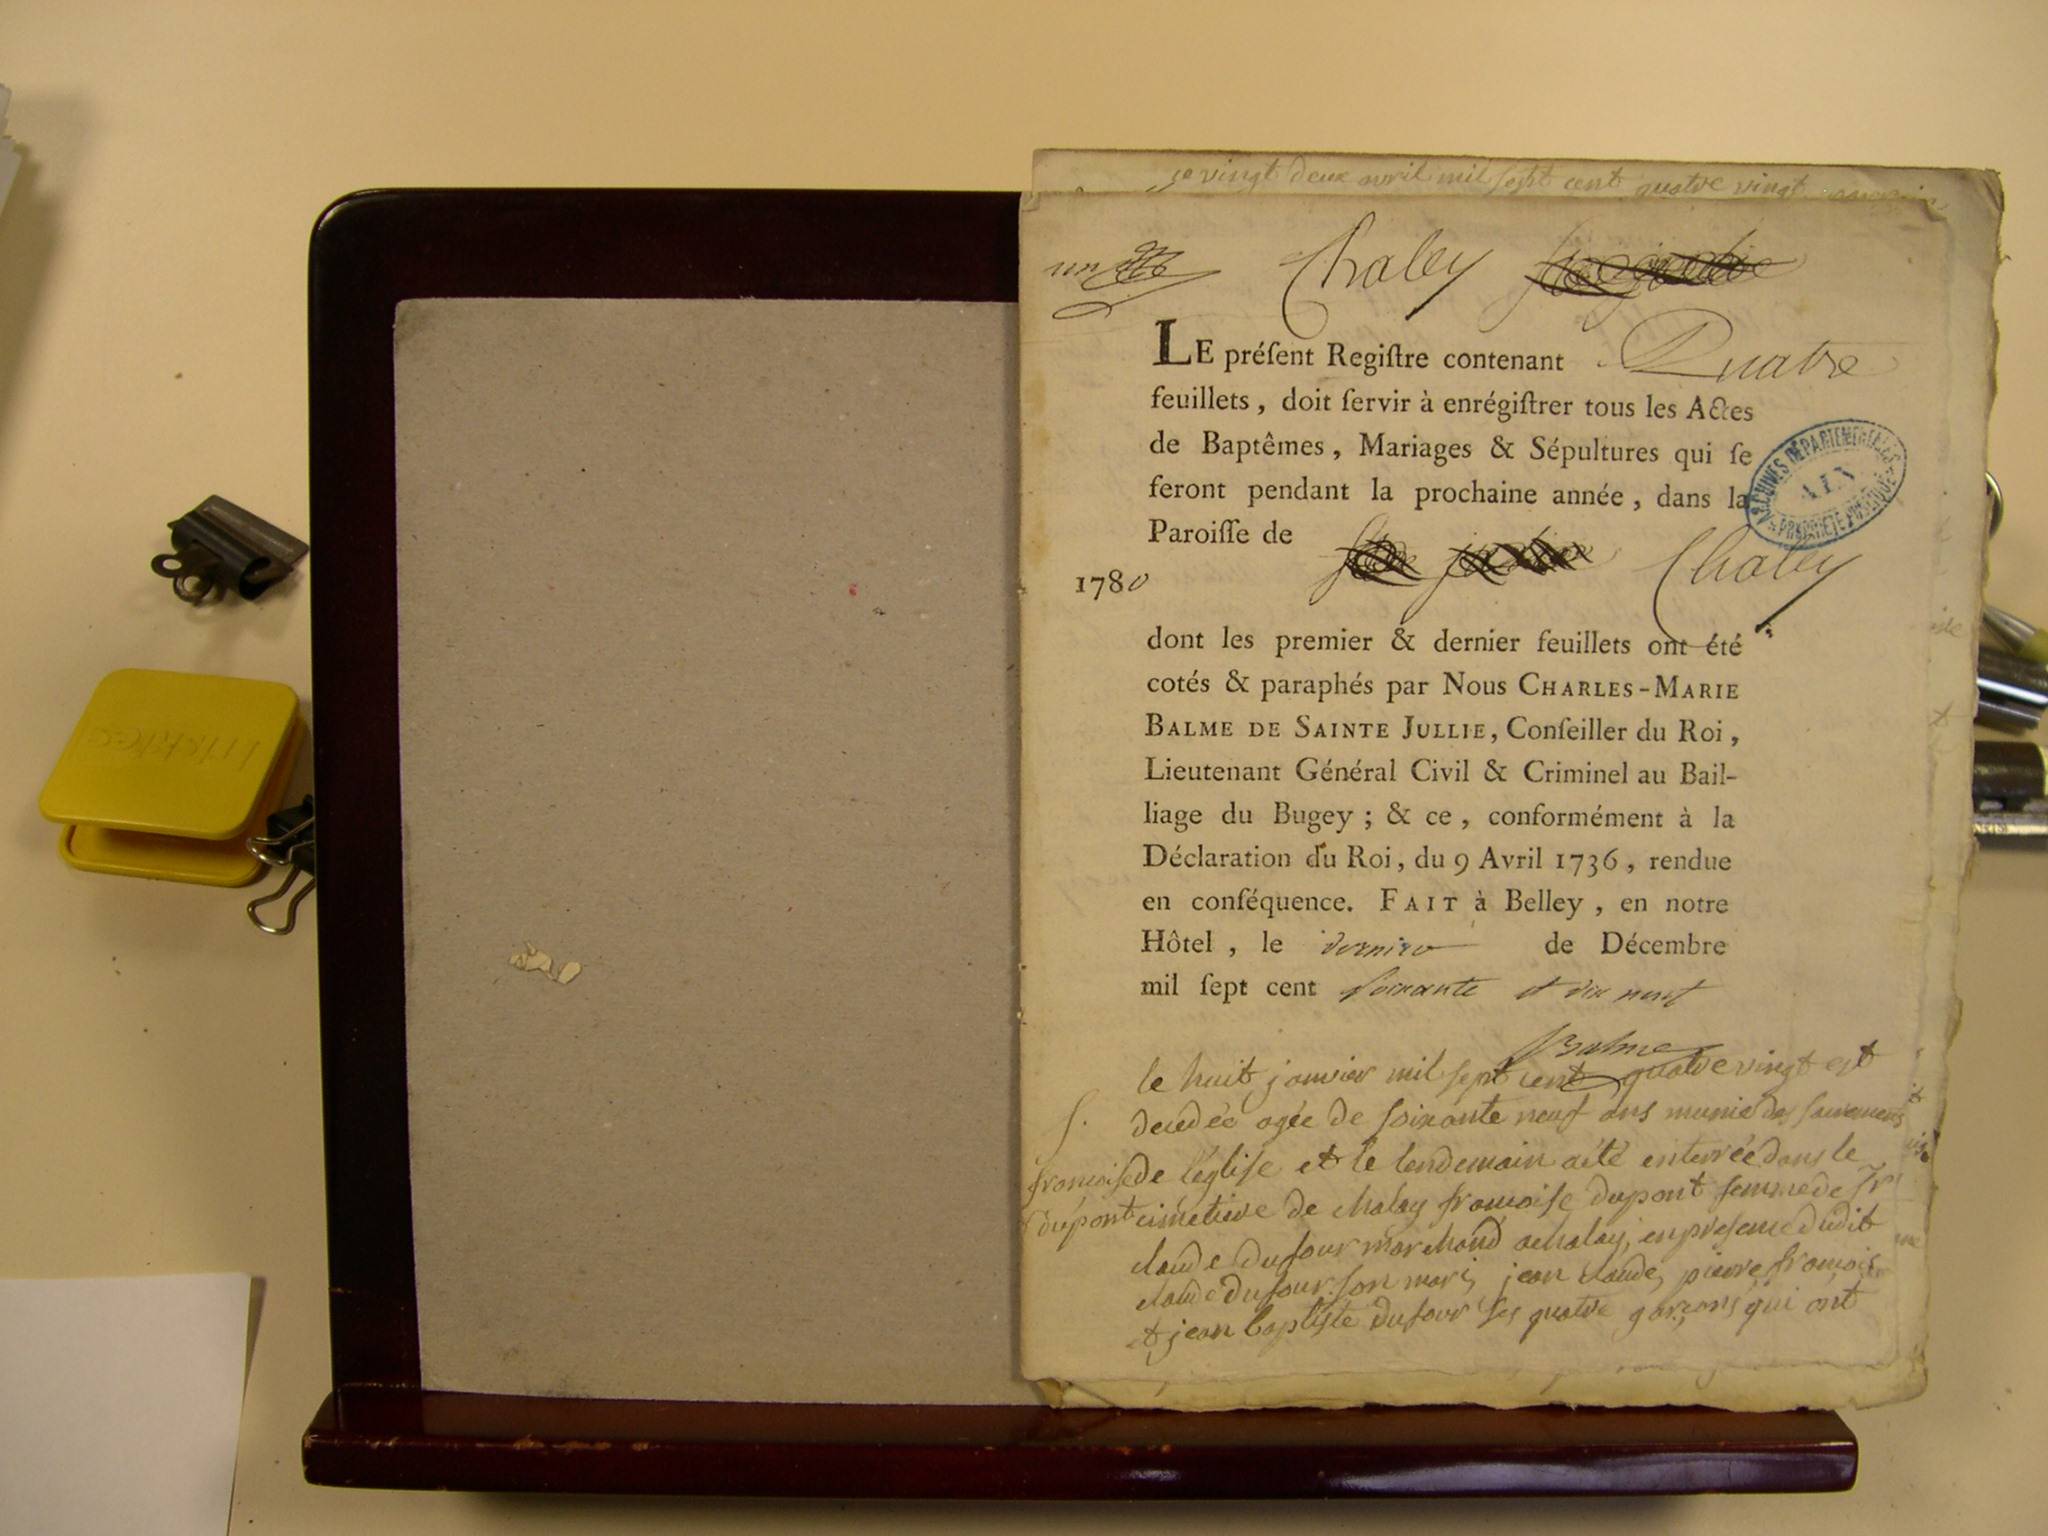 ce vingt deux avril mil sept cent quatre vingt
un Chaley
LE préſent Regiſtre contenant Quatre
feuillets, doit ſervir à enrégiſtrer tous les Actes
de Baptêmes, Mariages & Sépultures qui ſe
feront pendant la prochaine année, dans la
Paroiſſe de
1780 Chaley
ARCHIVES DÉPARTEMENTALES
AIN
PROPRIÉTÉ PUBLIQUE
dont les premier & dernier feuillets ont été
cotés & paraphés par Nous CHARLES-MARIE
BALME DE SAINTE JULLIE, Conſeiller du Roi,
Lieutenant Général Civil & Criminel au Bail-
liage du Bugey ; & ce, conformément à la
Déclaration du Roi, du 9 Avril 1736, rendue
en conſéquence. FAIT à Belley, en notre
Hôtel, le dernier de Décembre
mil ſept cent soixante et dix neuf
Balme
le huit janvier mil sept cent quatre vingt est
decedée agée de soixante neuf ans munie des sacremens
S.
francoise
dupont
de l'église et le lendemain a été enterrée dans le
cimetiere de chaley francoise dupont femme de Sr
claude dufour marchand a chaley, en presence dudit
claude dufour son mari, jean claude, pierre francois
et jean baptiste dufour ses quatre garcons qui ont